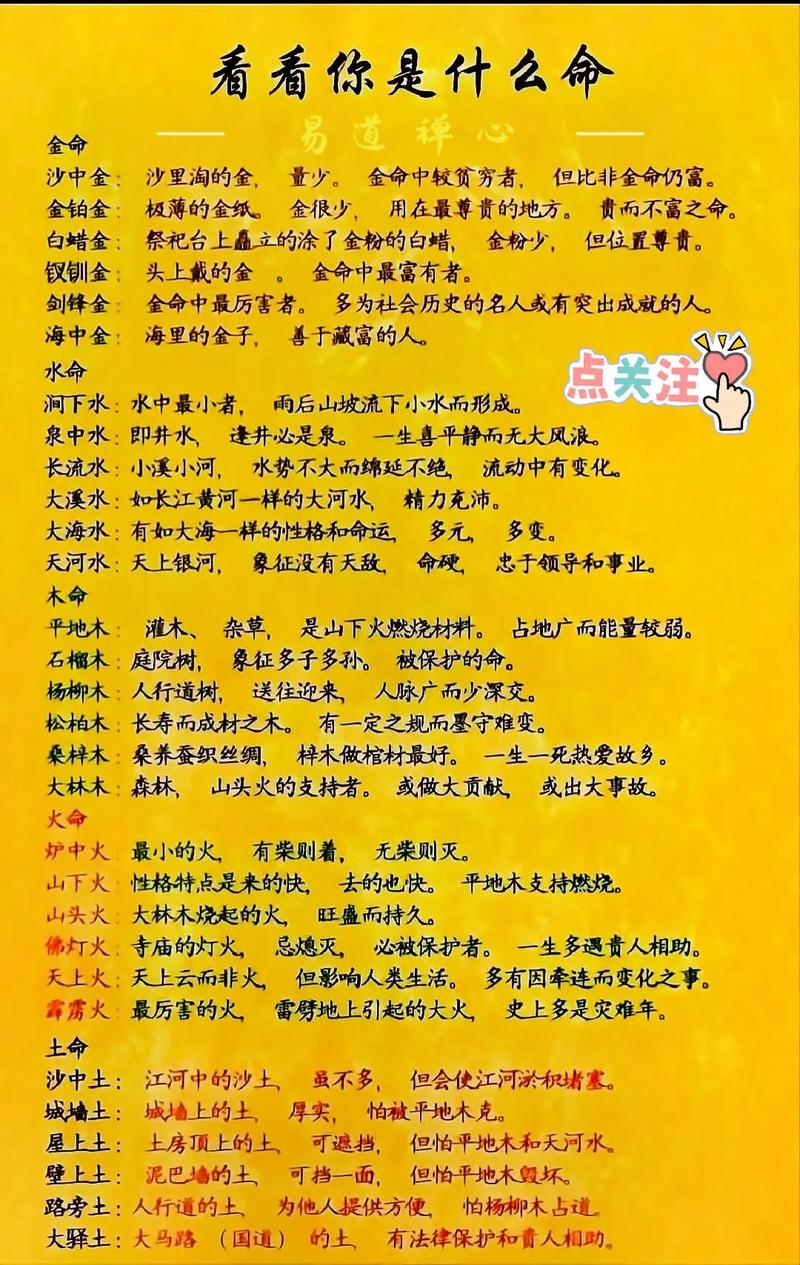 看看你是什么命
易道禅心
金命
沙中金： 沙里淘的金， 量少。 金命中较贫穷者， 但比非金命仍富。
金铂金： 极薄的金纸。 金很少， 用在最尊贵的地方。 贵而不富之命。
白蜡金： 祭祀台上矗立的涂了金粉的白蜡， 金粉少， 但位置尊贵。
钗钏金： 头上戴的金 。 金命中最富有者。
剑锋金： 金命中最厉害者。 多为社会历史的名人或有突出成就的人。
海中金： 海里的金子， 善于藏富的人。
点关注
水命
涧下水：水中最小者， 雨后山坡流下小水而形成。
泉中水：即井水， 逢井必是泉。 一生喜平静而无大风浪。
长流水：小溪小河， 水势不大而绵延不绝， 流动中有变化。
大溪水：如长江黄河一样的大河水， 精力充沛。
大海水：有如大海一样的性格和命运， 多元， 多变。
天河水：天上银河， 象征没有天敌， 命硬， 忠于领导和事业。
木命
平地木： 灌木、 杂草， 是山下火燃烧材料。 占地广而能量较弱。
石榴木：庭院树， 象征多子多孙。 被保护的命。
杨柳木：人行道树， 送往迎来， 人脉广而少深交。
松柏木：长寿而成材之木。 有一定之规而墨守难变。
桑梓木：桑养蚕织丝绸， 梓木做棺材最好。 一生一死热爱故乡。
大林木：森林， 山头火的支持者。 或做大贡献， 或出大事故。
火命
炉中火：最小的火， 有柴则着， 无柴则灭。
山下火：性格特点是来的快， 去的也快。 平地木支持燃烧。
山头火：大林木烧起的火， 旺盛而持久。
佛灯火：寺庙的灯火， 忌熄灭， 必被保护者。 一生多遇贵人相助。
天上火：天上云而非火， 但影响人类生活。 多有因牵连而变化之事。
霹雳火：最厉害的火， 雷劈地上引起的大火， 史上多是灾难年。
土命
沙中土： 江河中的沙土， 虽不多， 但会使江河淤积堵塞。
城墙土： 城墙上的土， 厚实， 怕被平地木克。
屋上土： 土房顶上的土， 可遮挡， 但怕平地木和天河水。
壁上土： 泥巴墙的土， 可挡一面， 但怕平地木毁坏。
路旁土：人行道的土， 为他人提供方便， 怕杨柳木占道。
大驿土：大马路 （国道） 的土， 有法律保护和贵人相助。